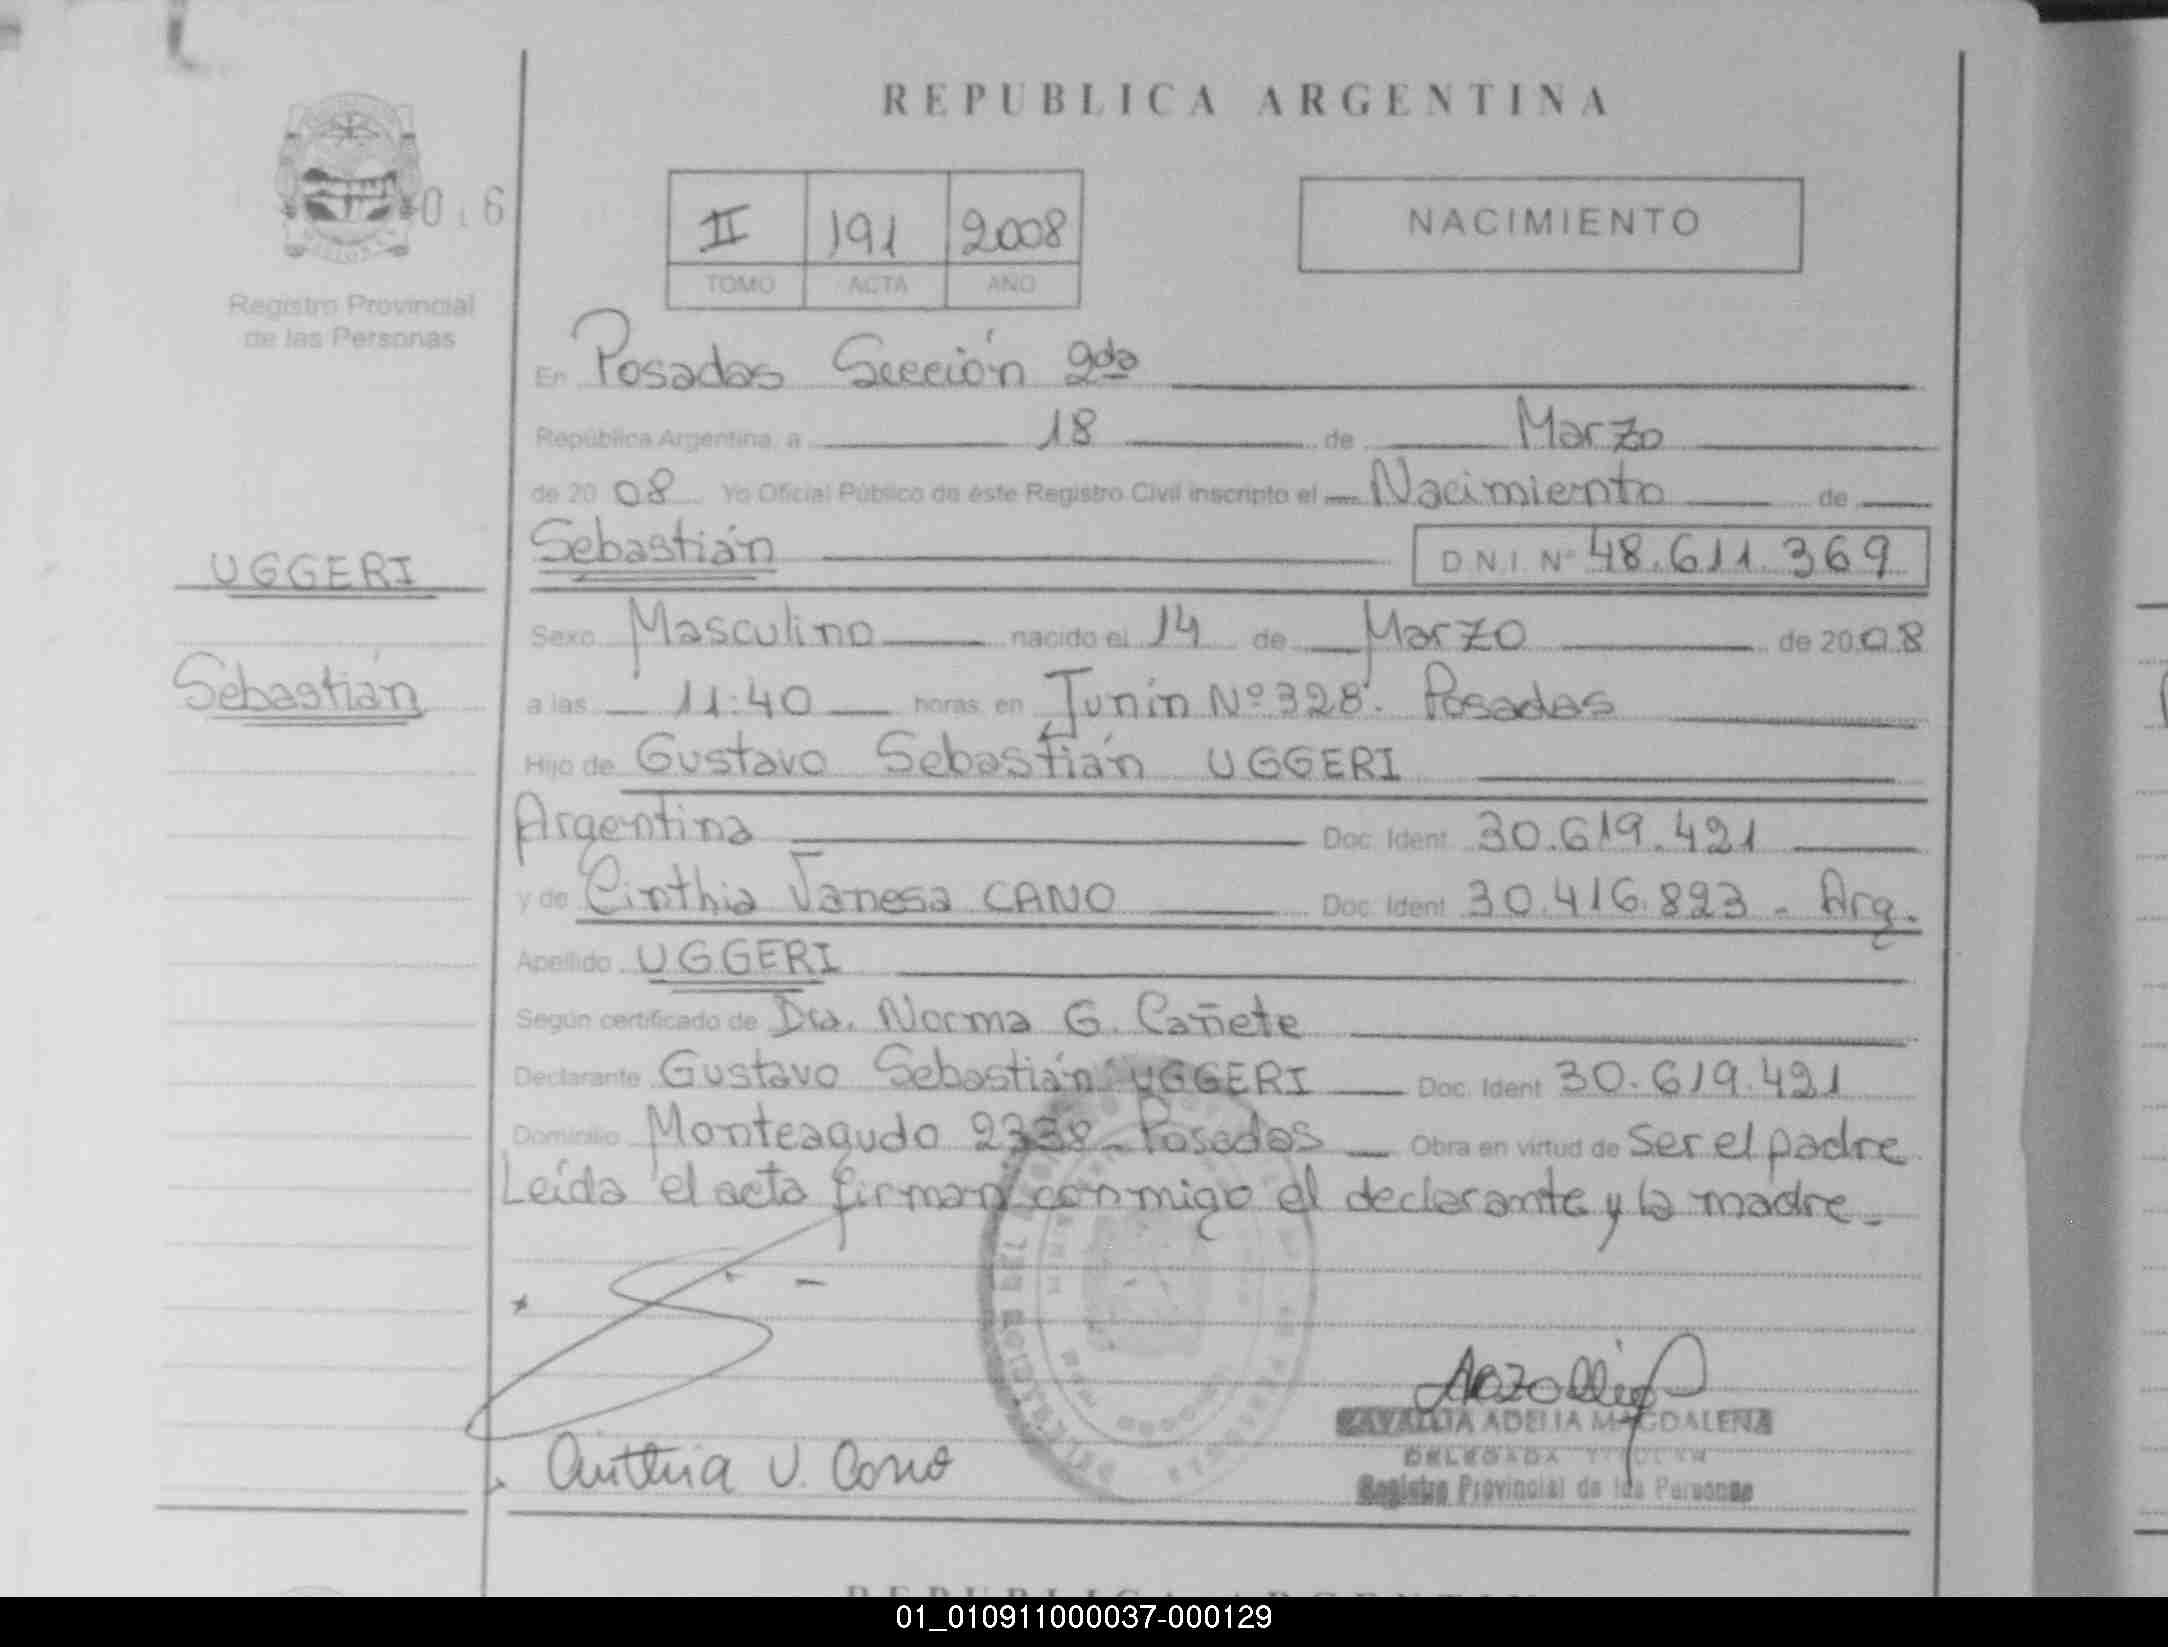 REPUBLICA ARGENTINA
016
Registro Provincial
de las Personas
II 191 2008
TOMO ACTA AÑO
NACIMIENTO
En Posadas Sección 2da
República Argentina, a 18 de Marzo
de 2008 Yo Oficial Público de éste Registro Civil inscripto el Nacimiento de
UGGERI
Sebastián
Sebastián D.N.I. Nº 48.611.369
Sexo Masculino nacido el 14 de Marzo de 2008
a las 11:40 horas, en Junín Nº 328. Posadas
Hijo de Gustavo Sebastián UGGERI
Argentina Doc. Ident 30.619.421
y de Cinthia Vanesa CANO Doc. Ident 30.416.823 - Arg.
Apellido UGGERI
Según certificado de Dra. Norma G. Cañete
Declarante Gustavo Sebastián UGGERI Doc. Ident 30.619.421
Domicilio Monteagudo 2338 - Posadas Obra en virtud de Ser el padre
Leída el acta firman conmigo el declarante y la madre.-
Cinthia V. Cano
ADELIA MAGDALENA
DELEGADA TITULAR
Registro Provincial de las Personas
01_010911000037-000129